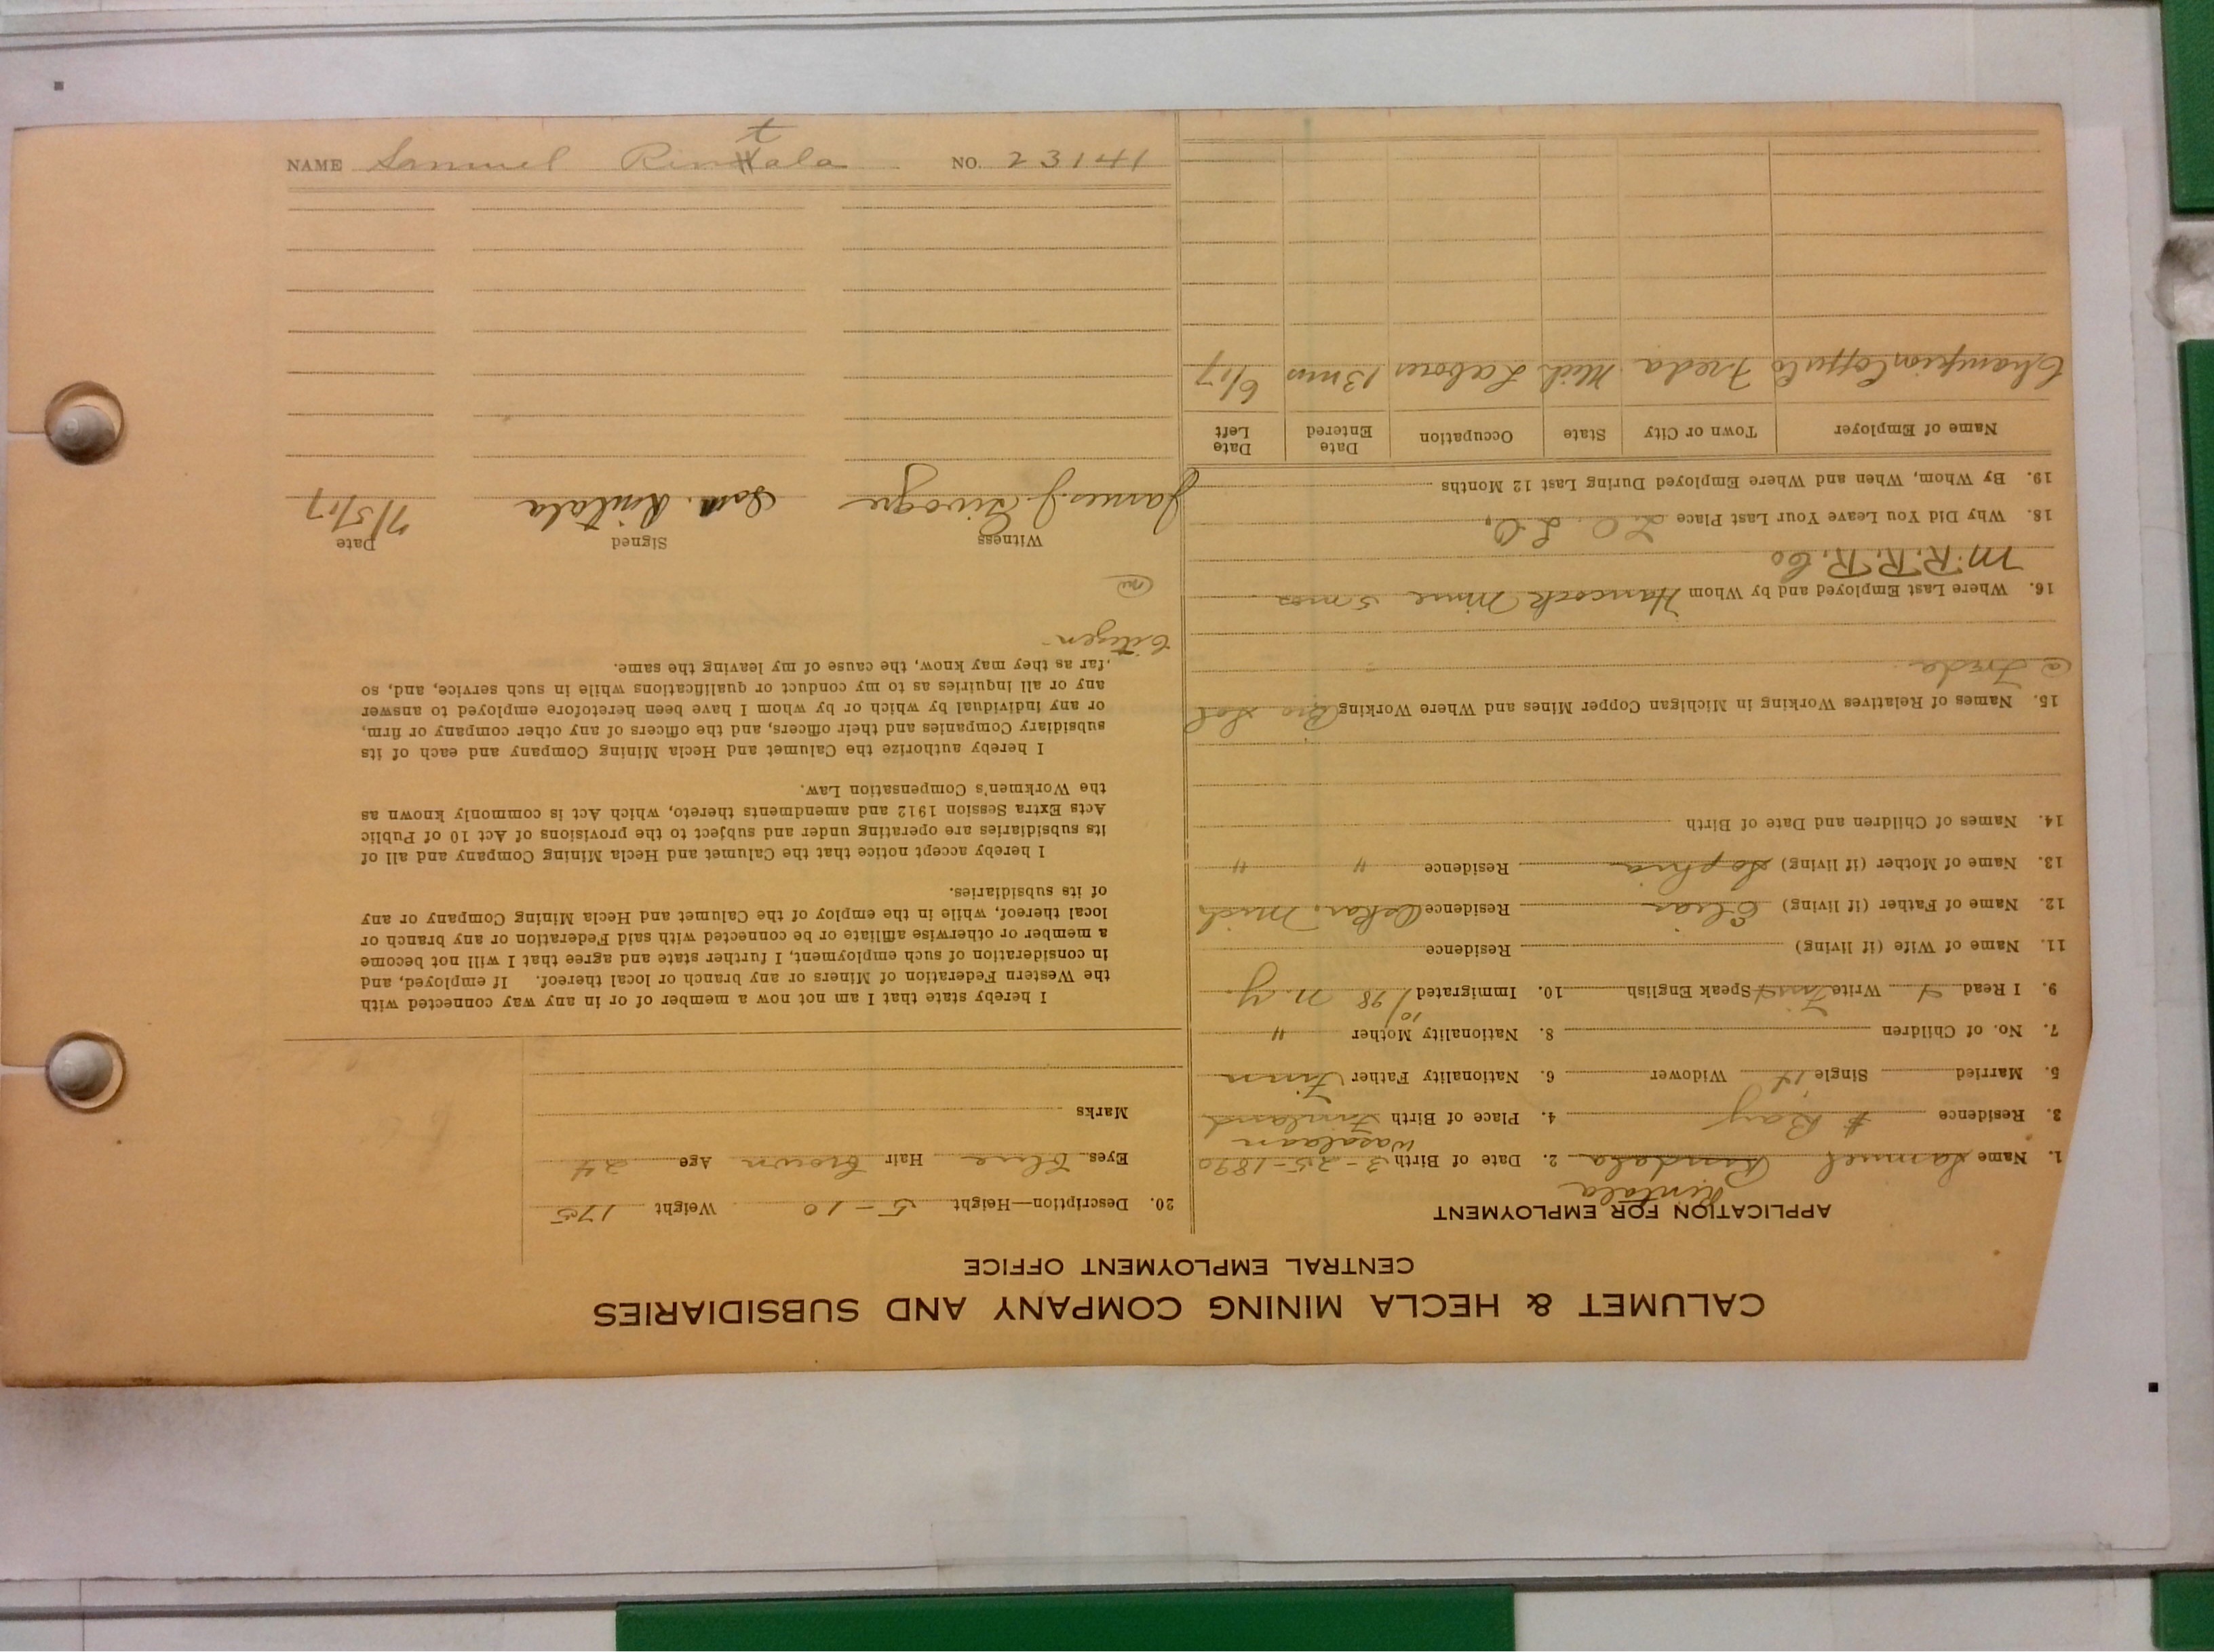 CALUMET & HECLA MINING COMPANY AND SUBSIDIARIES
CENTRAL EMPLOYMENT OFFICE
APPLICATION FOR EMPLOYMENT
Rintala
1. Name Samuel Rindala 2. Date of Birth 3-25-1890
Wasalaan
3. Residence # Bay 4. Place of Birth Finland
5. Married Single Widower 6. Nationality Father Finn
7. No. of Children 8. Nationality Mother "
9. I Read Write Finn Speak English 10. Immigrated 10/98 N.Y.
11. Name of Wife (if living) Residence
12. Name of Father (if living) Elias Residence Oskar, Mich
13. Name of Mother (if living) Sophia Residence " "
14. Names of Children and Date of Birth
15. Names of Relatives Working in Michigan Copper Mines and Where Working Bro Sol
@ Freda
16. Where Last Employed and by Whom Hancock Mine 5 mos
M.R.R.R. Co
18. Why Did You Leave Your Last Place L.O.
19. By Whom, When and Where Employed During Last 12 Months
Name of Employer Town or City State Occupation Date Entered Date Left
Champion Copper Co Freda Mich Laborer 13 mos 6/17
20. Description—Height 5-10 Weight 175
Eyes Blue Hair Brown Age 24
Marks
I hereby state that I am not now a member of or in any way connected with
the Western Federation of Miners or any branch or local thereof. If employed, and
in consideration of such employment, I further state and agree that I will not become
a member or otherwise affiliate or be connected with said Federation or any branch or
local thereof, while in the employ of the Calumet and Hecla Mining Company or any
of its subsidiaries.
I hereby accept notice that the Calumet and Hecla Mining Company and all of
its subsidiaries are operating under and subject to the provisions of Act 10 of Public
Acts Extra Session 1912 and amendments thereto, which Act is commonly known as
the Workmen's Compensation Law.
I hereby authorize the Calumet and Hecla Mining Company and each of its
subsidiary Companies and their officers, and the officers of any other company or firm,
or any individual by which or by whom I have been heretofore employed to answer
any or all inquiries as to my conduct or qualifications while in such service, and, so
far as they may know, the cause of my leaving the same.
Citizen
Witness Signed Date
James J. Sam. Rintala 7/5/17
NAME Samuel Rintala NO. 23141